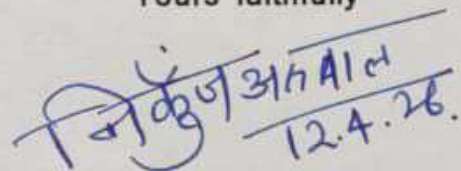 Yours faithfully
निकुँज
12.4.26.